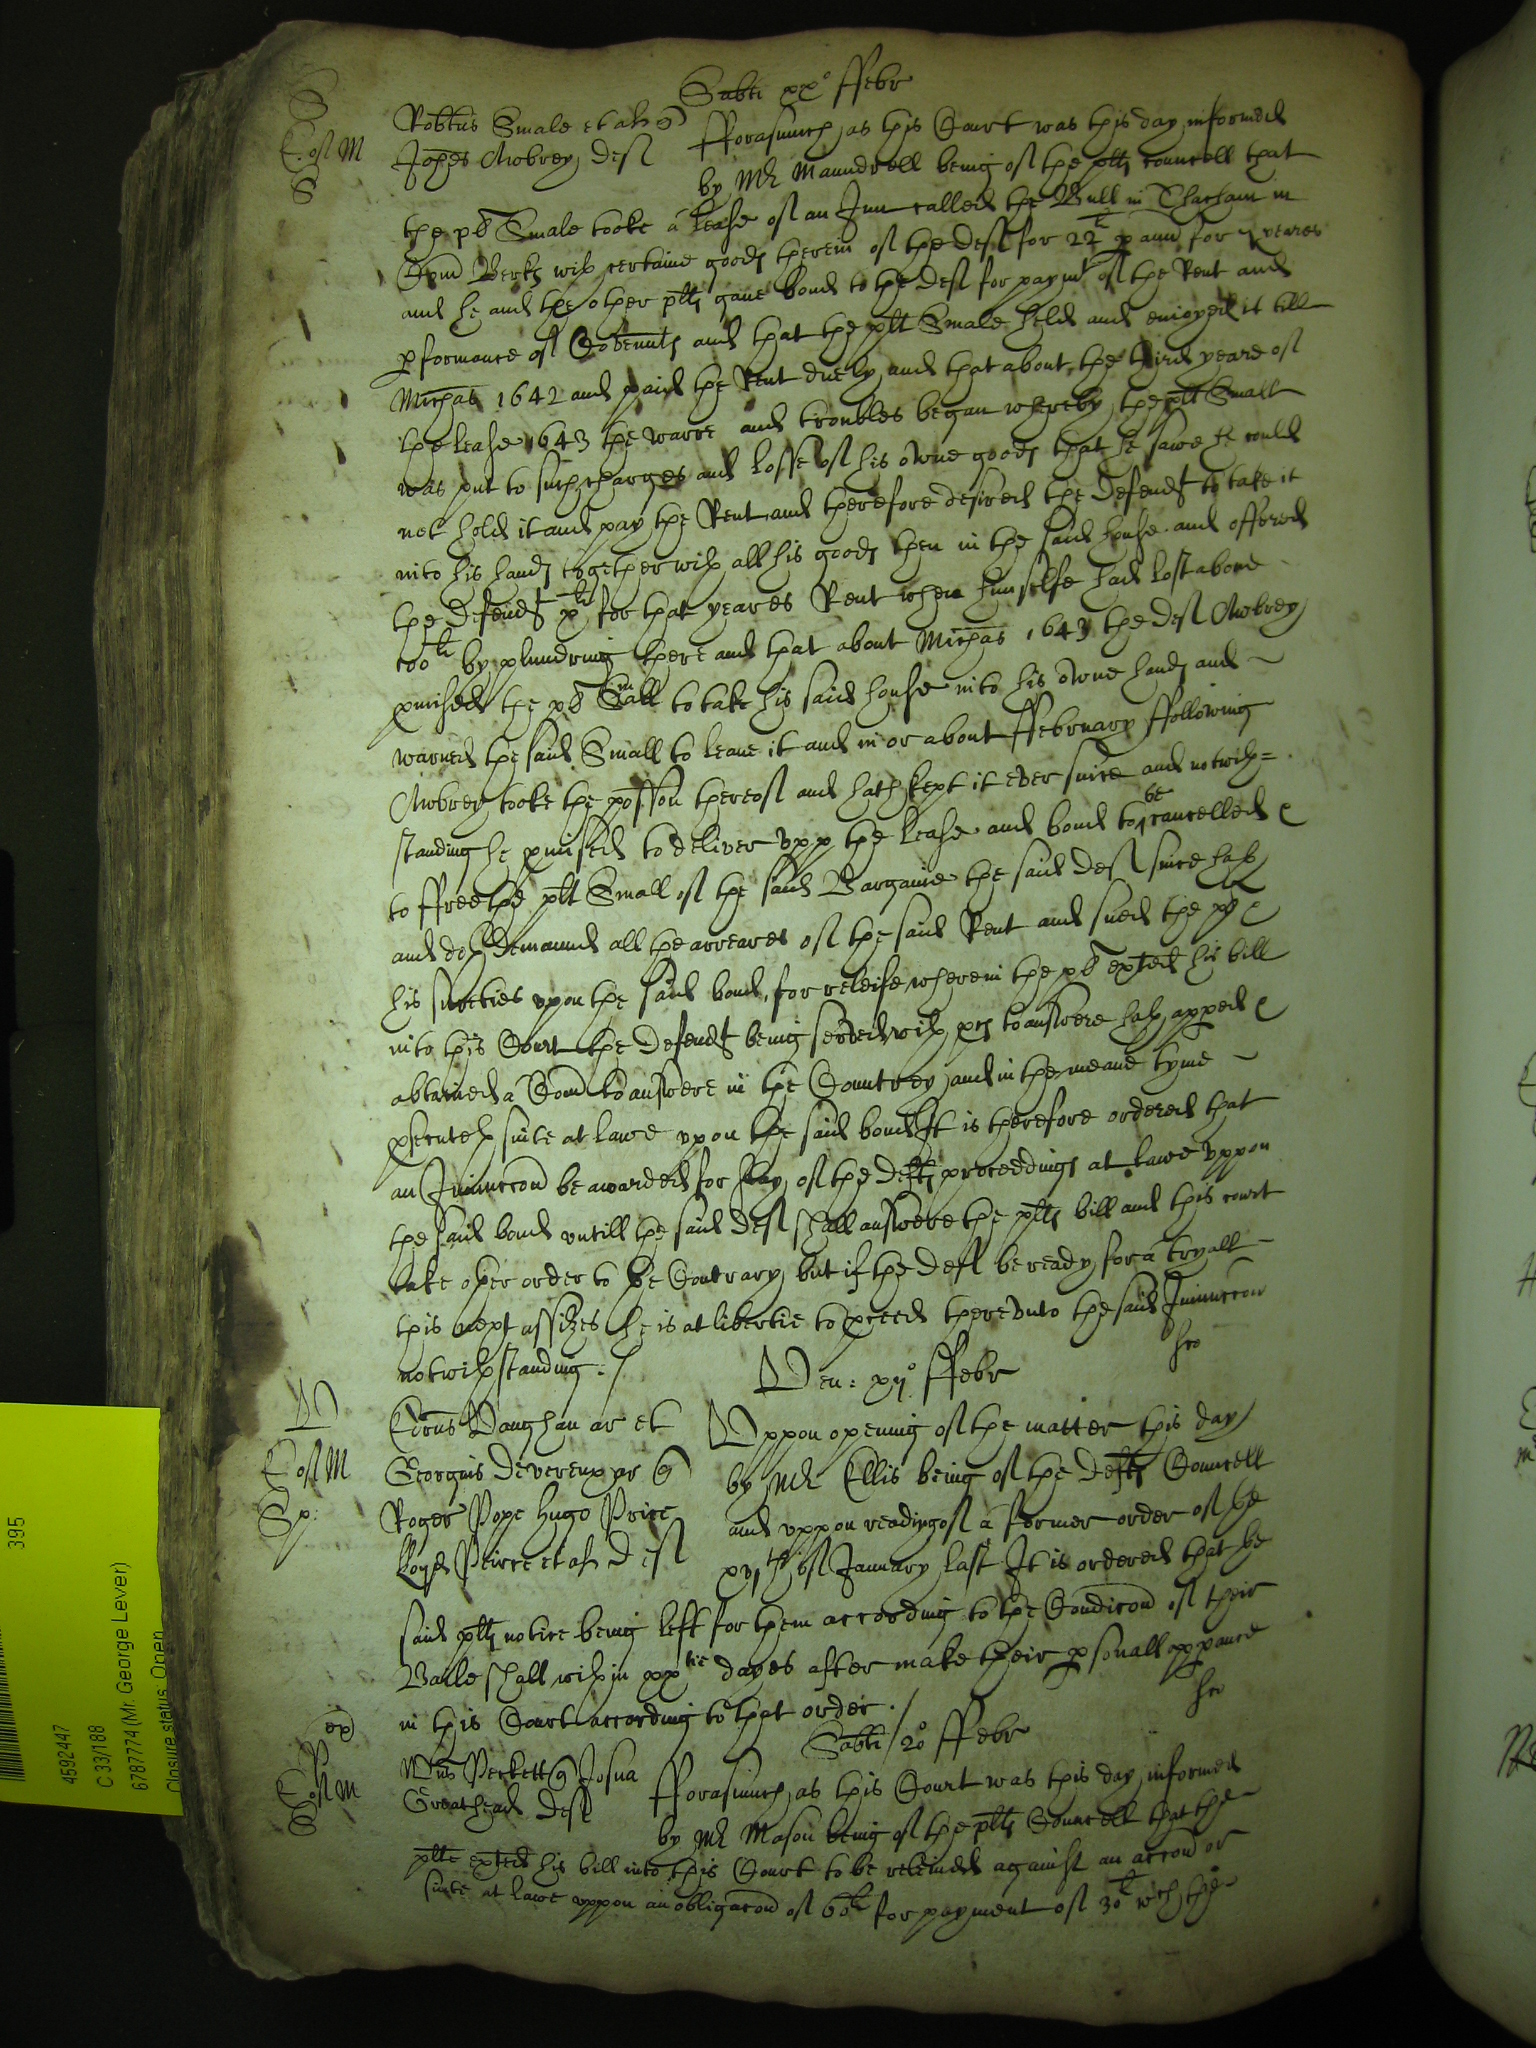 Sabti xx° ffebr
S
E. ost M
S
Robtus Smale et al q
Johes Awbrey deft
fforasmuch as this Court was this day informed
by Mr Maundrell being of the plts councell that
the pl Smale tooke a lease of an Inn called the Bull in Thacham in
Com Berks with certaine goods therein of the deft for 22l p ann for 7 yeares
and he and the other plts gave bond to the deft for paymt of the Rent and
pformance of Covennts and that the plt Smale held and enioyed it till
Michas 1642 and paid the Rent duely and that about the third yeare of
the lease 1643 the warre and troubles began whereby the plt Small
was put to such charges and losse of his owne goods that he sawe he could
not hold it and pay the Rent and therefore desired the defendt to take it
into his hands together with all his goods then in the said house and offered
the defendt xli for that yeares Rent when himselfe had lost above
100li by plundring there and that about Michas 1643 the deft Awbrey
pmised the pl Small to take his said house into his owne hands and
warned the said Small to leave it and in or about ffebruary ffollowing
Awbrey tooke the possion thereof and hath kept it ever since and notwith=
standing he pmised to deliver upp the lease and bond to be cancelled &
to ffree the plt Small of the said Bargaine the said deft since hath
and doth demaund all the arreares of the said Rent and sued the pl &
his sureties upon the said bond, for releife wherein the pl exhted his bill
into this Court the defendt being served with pces to answere hath apped &
obtained a Comn to answere in the Countrey and in the meane tyme
psecuteth suite at lawe upon the said bond It is therefore ordered that
an Iniuncon be awarded for stay of the defts proceedings at lawe uppon
the said bond untill the said deft shall answere the plts bill and this court
take other order to the Contrary but if the deft be ready for a tryall
this next assizes he is at libertie to pceed thereunto the said Iniuncon
notwithstanding ./
Ven: xij° ffebr
E ost M
Edrus Vaughan ar et
Georgius Devereux ar q
Roger Pope Hugo Price
lloyd Peirce et al deft
Uppon opening of the matter this day
by Mr Ellis being of the defts Councell
and uppon reading of a former order of the
xvjth of January last It is ordered that the
said plts notice being left for them according to the Condicon of their
Baile shall within xxtie dayes after make their psonall appance
in this Court according to that order ./
Sabti 20° ffebr
E ost M
S
Wms Peckett q Josua
Greathead deft
fforasmuch as this Court was this day informed
by Mr Mason being of the plts Councell that the
plte exhted his bill into this Court to be releived against an accon or
suite at lawe uppon an obligacon of 60li for payment of 30li wch the
395
4592447
C 33/188
6787774 (Mr. George Lever)
Closure status: Open